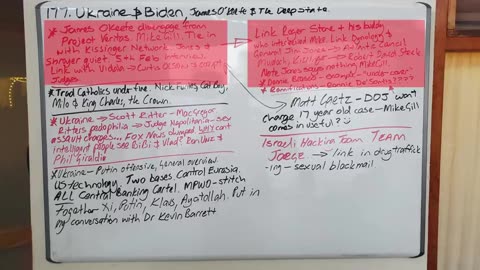 177. Ukraine & Biden, James O'Keefe & The Deep State.
* James O'Keefe disengage from
Project Veritas. Mike Gill. Tie in
with Kissinger Network. Jones &
Shroyer quiet. 5th Feb interview.
Link with Vidolin → Curtis
Judges
* Trad Catholics under fire. Nick Fuentes, Cat Boy,
Milo & King Charles, the Crown.
* Ukraine → Scott Ritter - MacGregor
Ritters pedophilia → Judge Napolitano - sex
assault charges... Fox News dumped. WHY can't
intelligent people see BiBi & Vlad? Ben Wave &
Phil Giraldi
* Ukraine - Putin offensive, general overview
US technology. Two bases. Control Eurasia.
ALL Central Banking Cartel. MPWD - stitch
together Xi, Putin, Klaus, Ayatollah. Put in
my conversation with Dr Kevin Barrett
Link Roger Stone & his buddy
who interviewed Mike. Link Dynology &
General Jim Jones → Atlantic Council
Murdoch, Bill Barr → Robert David Steele
Note Jones exposes nothing, Mike Gill.
* Donnie Brasco - example - "under-cover"
* Ramifications - Donnie De Santis????
Matt Gaetz - DOJ won't
charge 17 year old case - Mike Gill
comes in useful? :)
Israeli Hacking Team TEAM
JORGE → link in drug traffick
-ing - sexual blackmail.